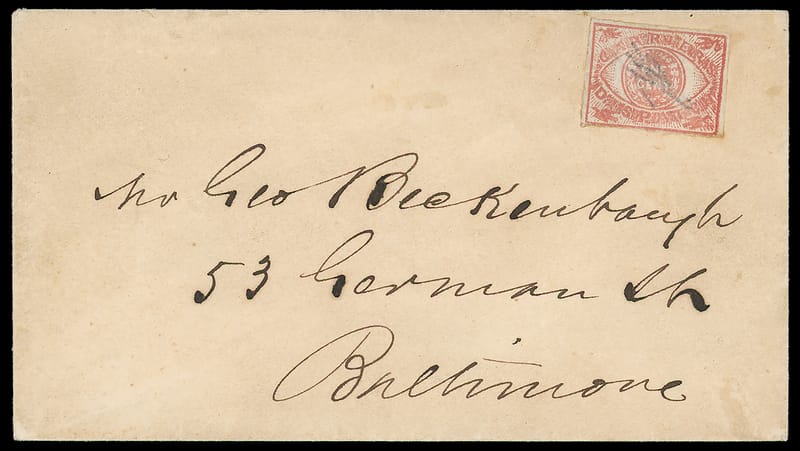 Mr Geo Beckenbaugh
53 German St
Baltimore